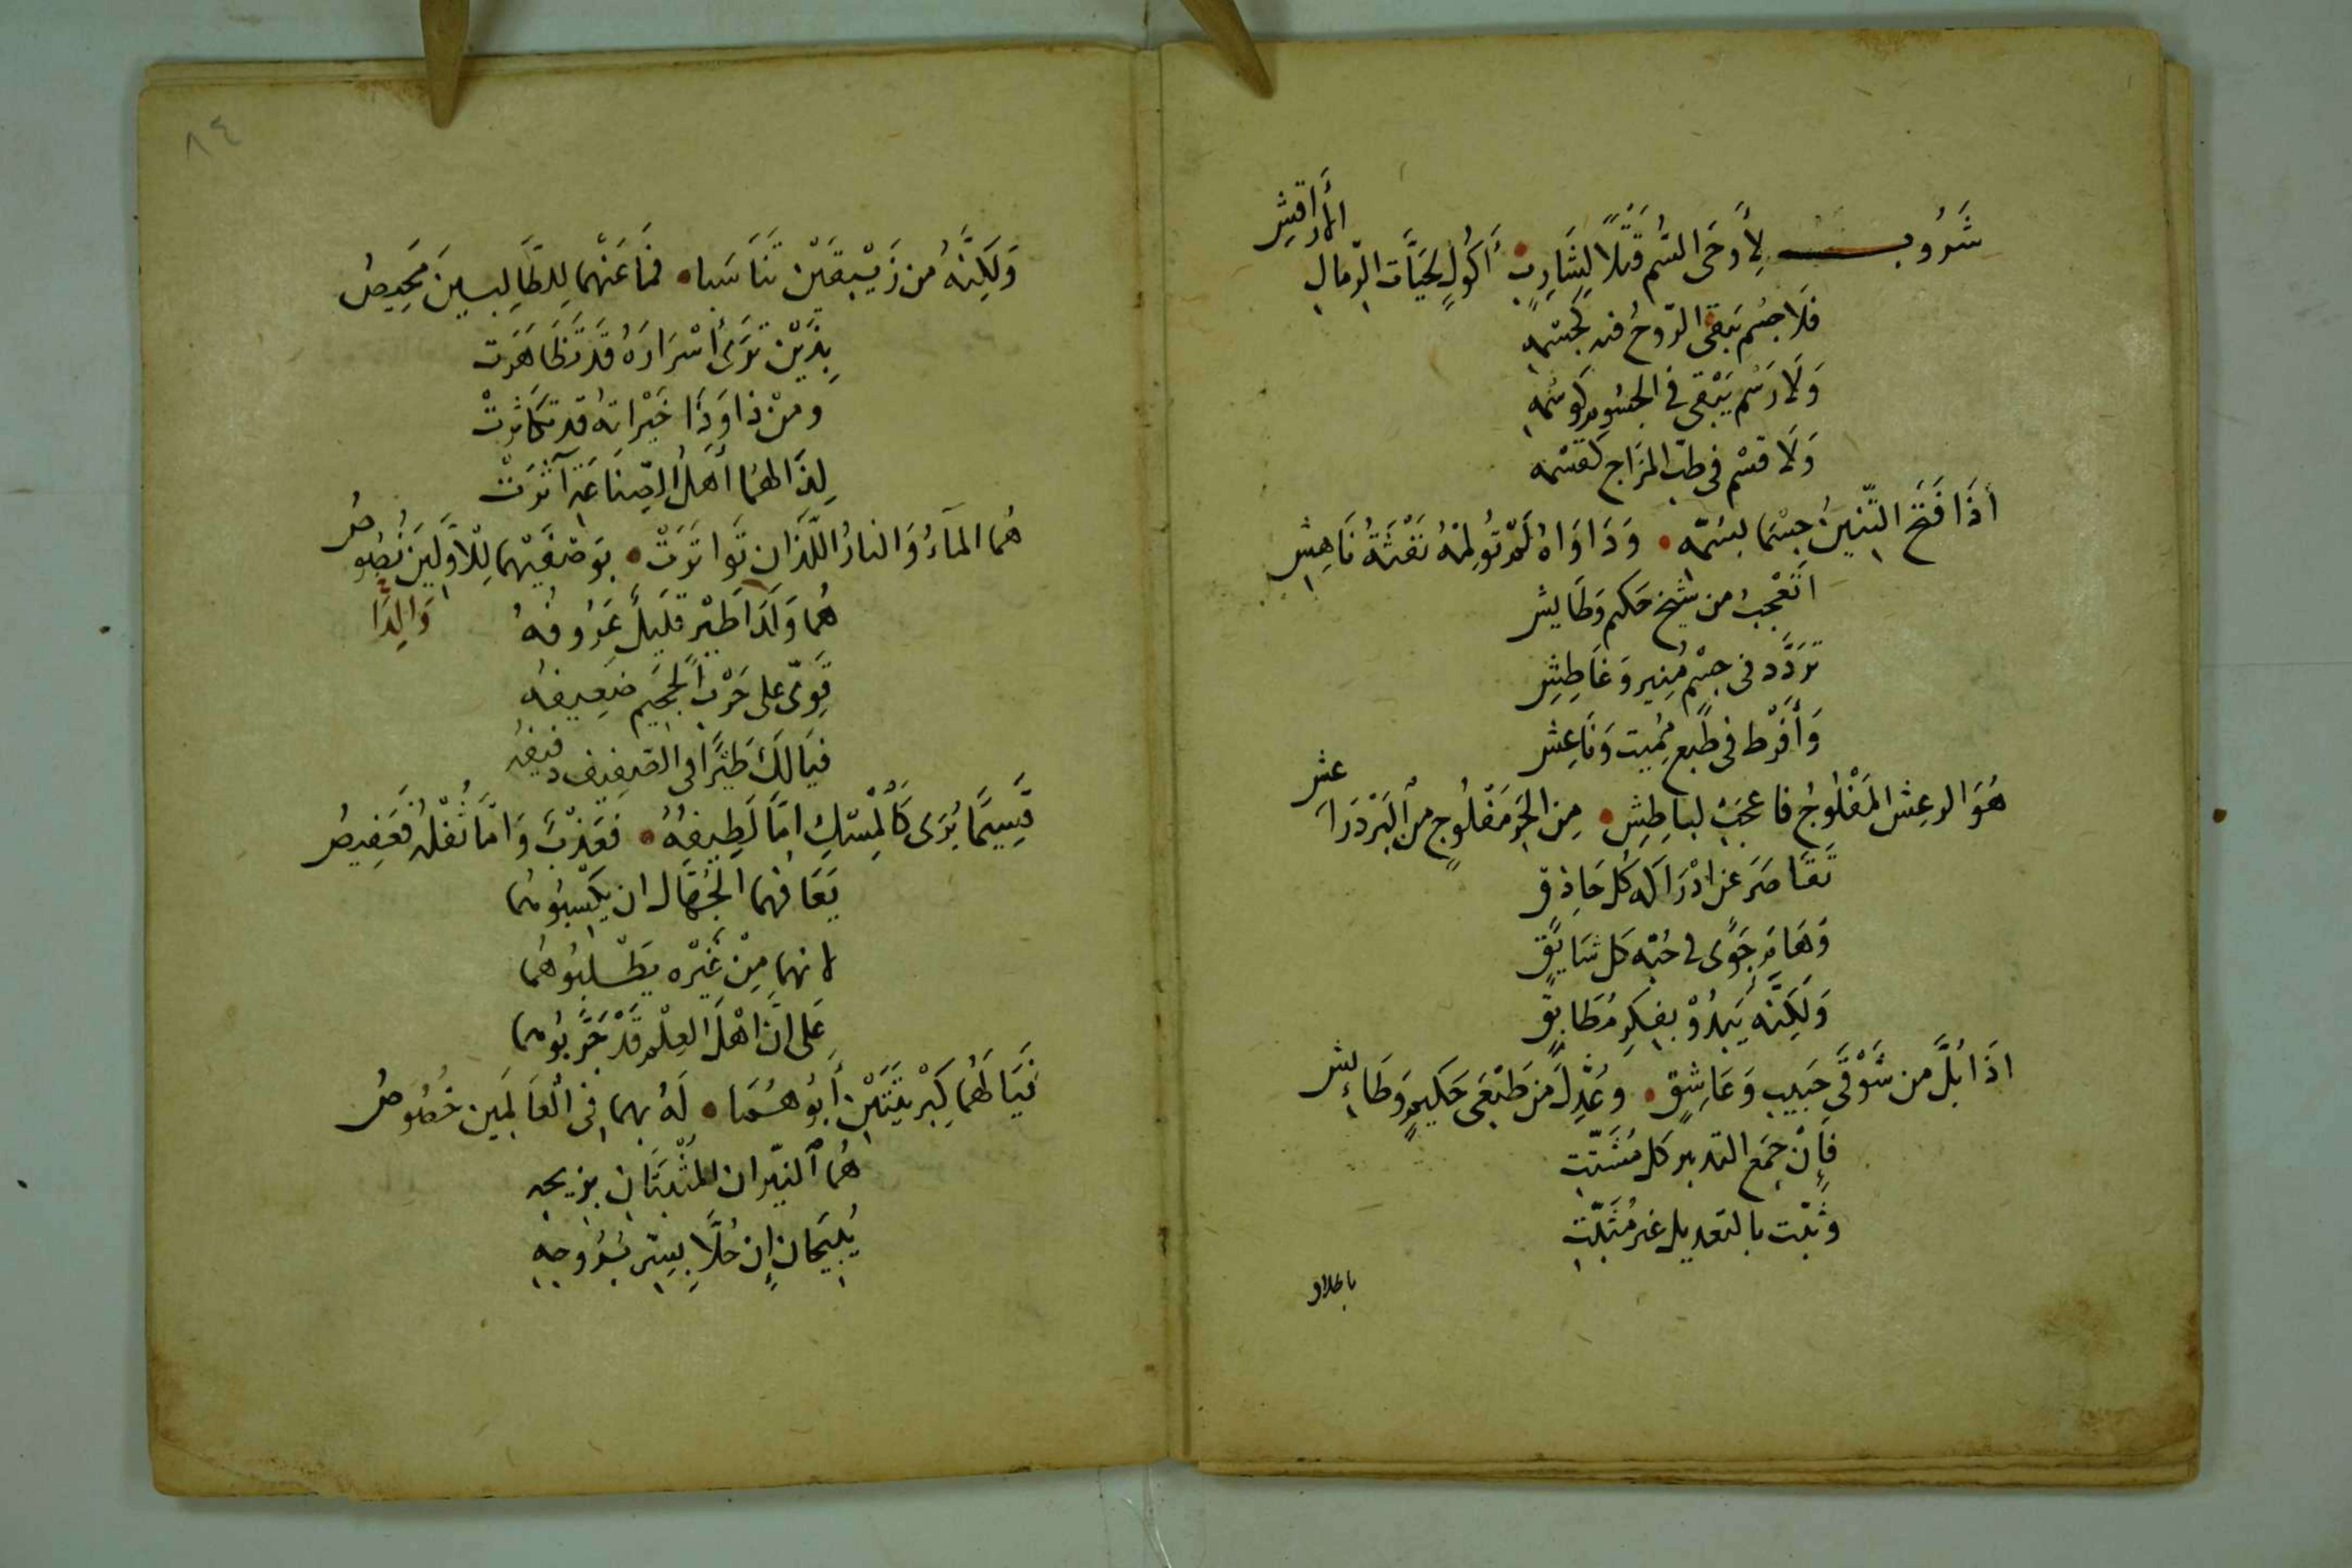 شَرُوبٍ لِأَوحَى السُّم قَتْلًا لِشَارِبٍ • أَكُولٍ لِحَيَّاتِ الرِّمالِ الأَراقِشِ
فَلَا جِسْم يَبقَى الرّوحُ فيه كَجِسْمِهِ
وَلَا رَسْم يَبْقى فى الجسُومِ كَوَسْمِهِ
وَلَا قسْم فى طبّ المزَاج كقَسْمه
اذَا فَتَحَ التِّنّينُ جِسْمًا لِسُمّهِ • وَدَاوَاهُ لَمْ تُولِمْهُ نَفْثَةُ نَاهِشِ
اتَعْجبُ من شيخ حَكم وَطَايشِ
تَردَّد فى جِسْمٍ مُنِير وَغَاطِشِ
وَأَفْرَط فى طبع مُميت وَنَاعِش
هُوَ الرعِش المَفْلُوجُ فاعجَبْ لباطِشٍ • مِن الحَرِّ مَفْلُوجٍ مِنَ البَرْدِ رَاعشِ
تَقَاصَرَ عن ادْرَاكه كُل حَاذق
وَهَامَ جَوًى فى حُبّه كل شَايقٍ
وَلَكِنّه يَبدُوْ بفِكرٍ مُطَابقٍ
اذَا بُلَّ من شَوْقَى حَبيبٍ وَعَاشِقٍ • وعُدِّلَ مِن طَبْعَى حَكيمٍ وَطَائِشِ
فَإِنْ جمَع التدبير كل مُشَتّتِ
وثبّت بالتعديل غير مُثَبّتِ
وَلَكِنَّهُ من زَيْبَقَيْن تَنَاسَبا • فمَا عَنْهُما لِلطَّالِبينَ مَحِيصُ
بِذَيْن تَرَى أَسْرَارَهُ قَد تَظَاهَرَت
ومنْ ذا وَذَا خَيْراتهُ قد تكاثرتْ
لِذَا لهُمَا أَهلُ الصّنَاعَة آثرَتْ
هُما المآءُ وَالنارُ اللّذَان تَواترَتْ • بوَصْفَيْهما لِلْاوَّلينَ نُصُوصُ
هُمَا وَلَدَا طَيْر قَليلٌ عَزُوفُهُ
وَالِدَا
قَوىّ على حَرْب الجحَيم ضَعِيفهُ
فيَالَكَ طَيْرًا فى الصَّفِيف دفيفُه
قَسِيمًا يُرَى كَالْمِسْكِ امَّا لَطِيفُهُ • فَعَذْبٌ وَامَّا ثُفْلُهُ فعَفِيصُ
يَعَافهُما الجُهّالُ ان يَكسِبُوهُما
لانهما مِنْ غَيْره يَطْلبُوهُمَا
عَلى انَّ اهْلَ العِلْمِ قَدْ جَرَّبُوهُما
فَيَا لَهُمَا كِبْرِيتَيْنِ أَبُوهُمَا • لَهُ بهما فى العَالَمين خُصُوصُ
هُمَا النيّران المُثْبَتَان بزيجهِ
يُليحَانِ إن حُلّا بِسِرّ بُرُوجهِ
٨٤